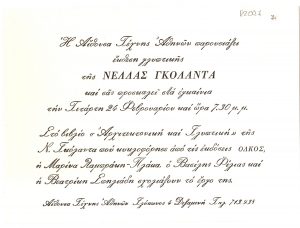 Ἡ Αἴθουσα Τέχνης Ἀθηνῶν παρουσιάζει
ἔκθεση γλυπτικῆς
τῆς ΝΕΛΛΑΣ ΓΚΟΛΑΝΤΑ
καὶ σᾶς προσκαλεῖ στὰ ἐγκαίνια
τὴν Τετάρτη 24 Φεβρουαρίου καὶ ὥρα 7.30 μ.μ.
Στὸ βιβλίο «Ἀρχιτεκτονικὴ καὶ Γλυπτικὴ» τῆς
Ν. Γκόλαντα ποὺ κυκλοφόρησε ἀπὸ τὶς ἐκδόσεις ΟΛΚΟΣ,
ἡ Μαρίνα Λαμπράκη-Πλάκα, ὁ Βασίλης Ρώτας καὶ
ἡ Βεατρίκη Σπηλιάδη σχολιάζουν τὸ ἔργο της.
Αἴθουσα Τέχνης Ἀθηνῶν Γλύκωνος 4 Δεξαμενὴ Τηλ. 713.938